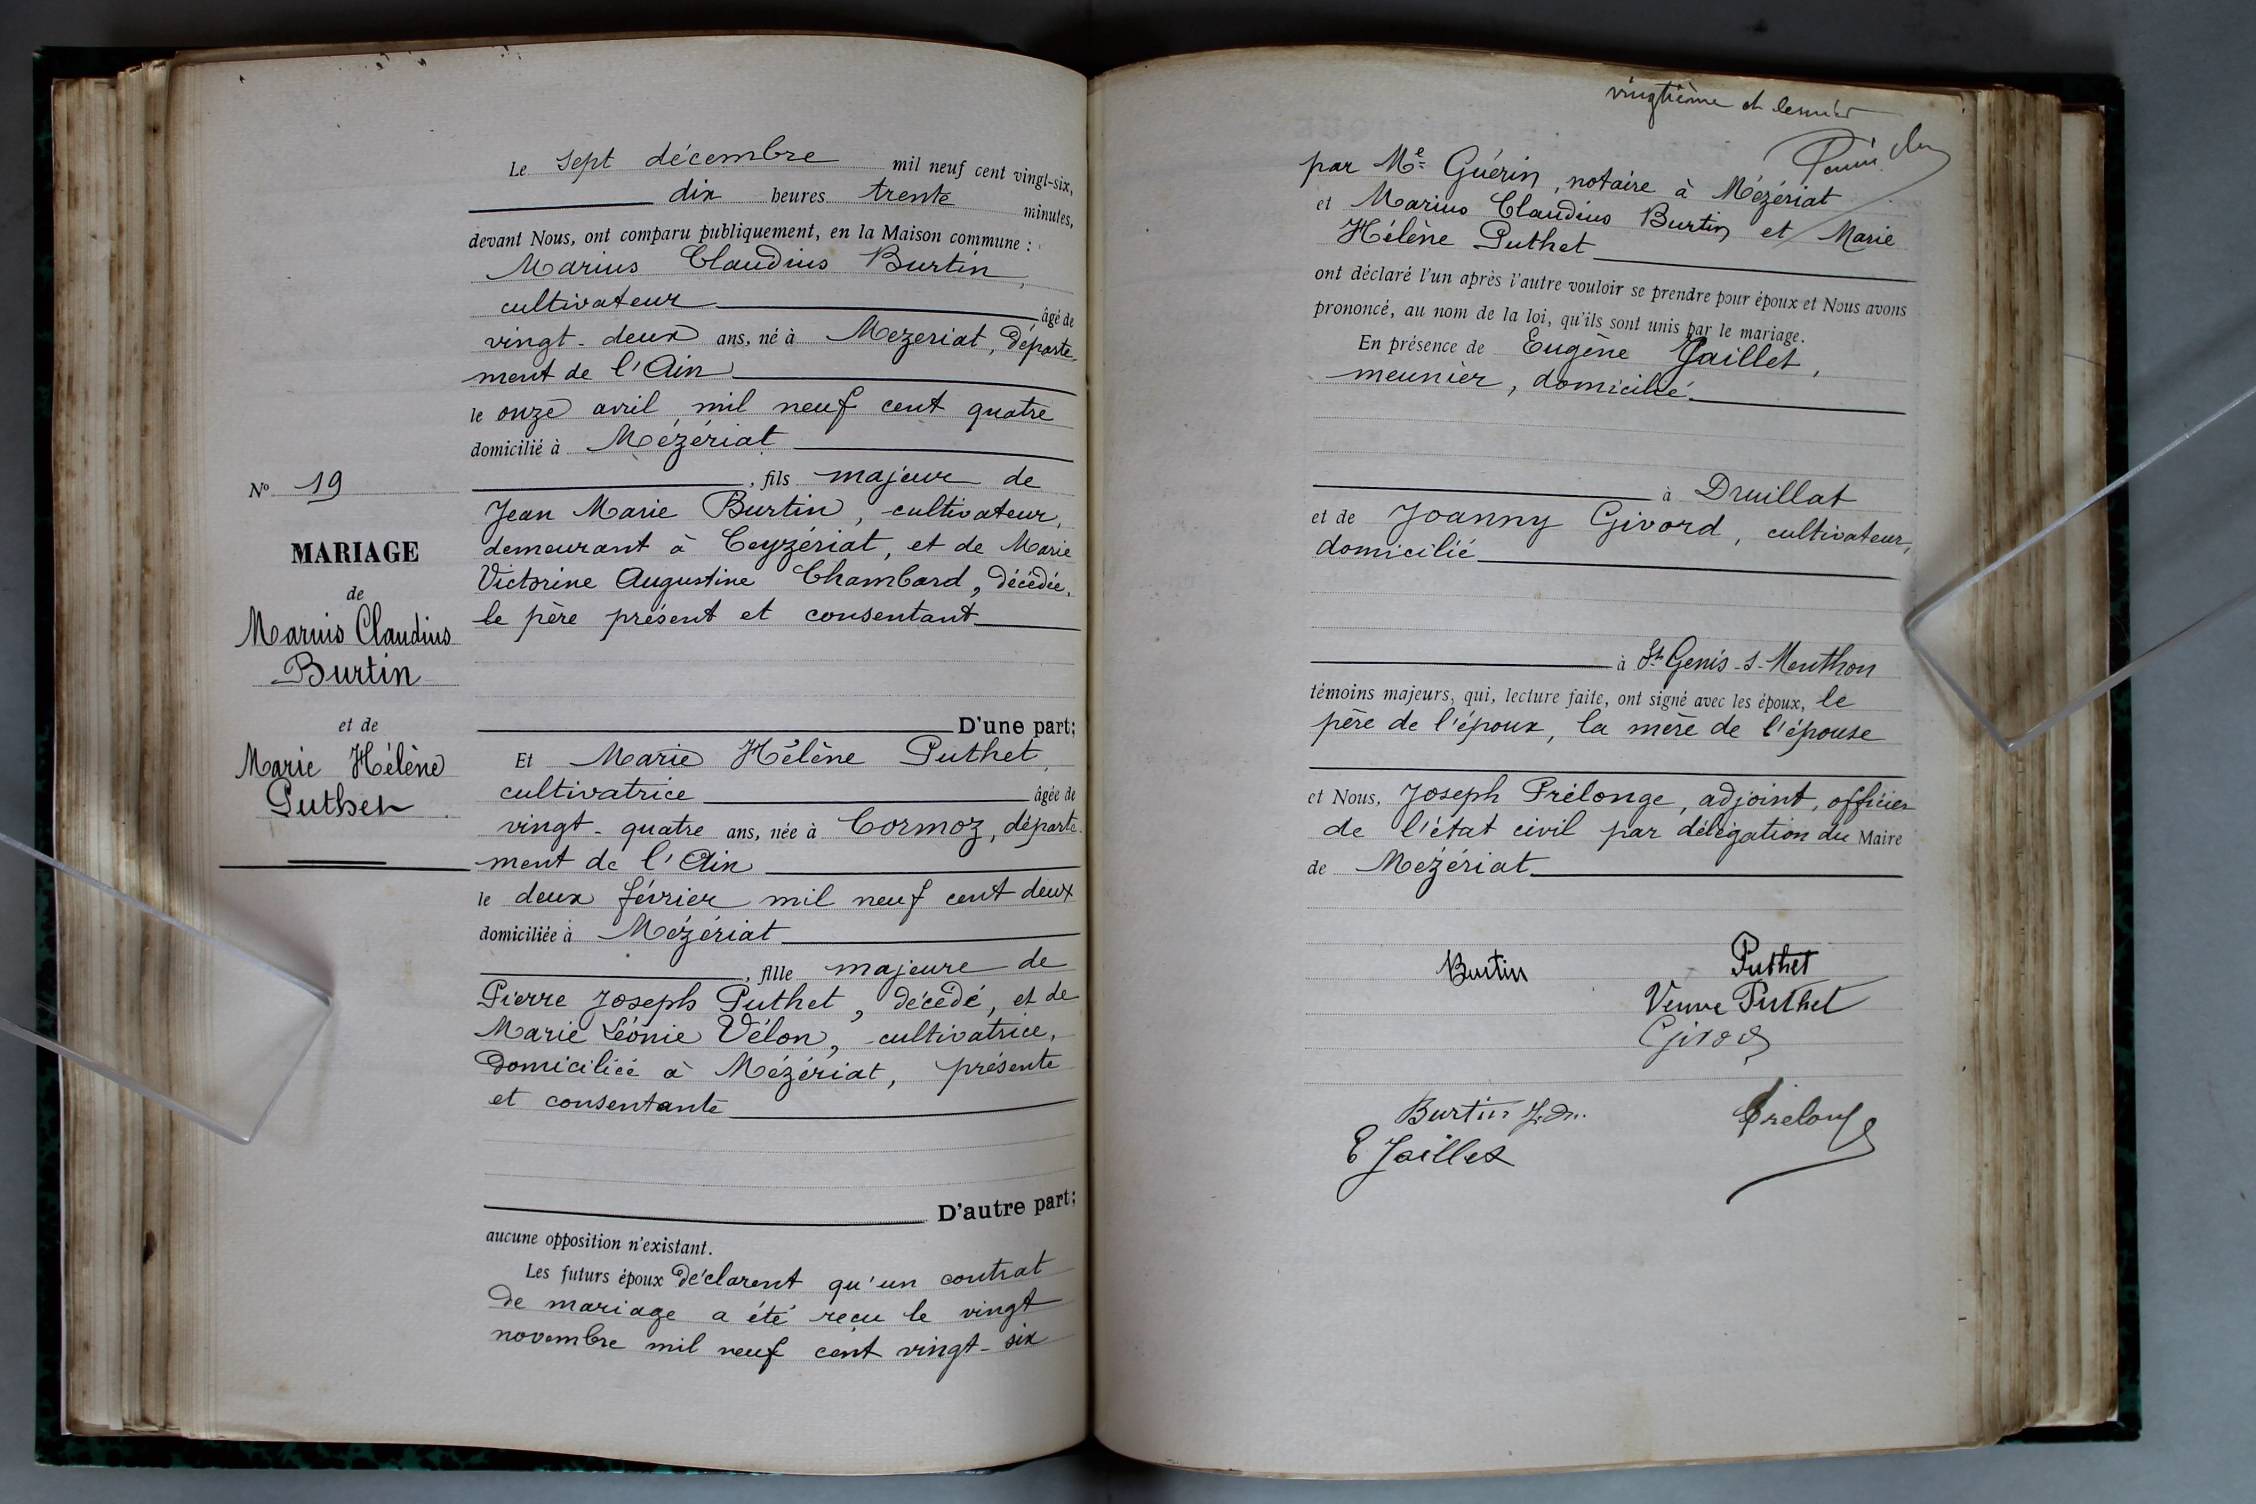 Le sept décembre mil neuf cent vingt-six,
dix heures trente minutes,
devant Nous, ont comparu publiquement, en la Maison commune :
Marius Claudius Burtin,
cultivateur âgé de
vingt-deux ans, né à Mezeriat, départe-
ment de l'Ain
le onze avril mil neuf cent quatre
domicilié à Mézériat
, fils majeur de
Jean Marie Burtin, cultivateur,
demeurant à Ceyzériat, et de Marie
Victorine Augustine Chambard, décédée,
le père présent et consentant
D'une part;
Et Marie Hélène Puthet,
cultivatrice âgée de
vingt-quatre ans, née à Cormoz, départe-
ment de l'Ain
le deux février mil neuf cent deux
domiciliée à Mézériat
, fille majeure de
Pierre Joseph Puthet, décédé, et de
Marie Léonie Vélon, cultivatrice,
domiciliée à Mézériat, présente
et consentante
D'autre part;
aucune opposition n'existant.
Les futurs époux déclarent qu'un contrat
de mariage a été reçu le vingt
novembre mil neuf cent vingt-six
No 19
MARIAGE
de
Marius Claudius
Burtin
et de
Marie Hélène
Puthet
vingtième et dernier
par Me Guérin, notaire à Mézériat
et Marius Claudius Burtin et Marie
Hélène Puthet
ont déclaré l'un après l'autre vouloir se prendre pour époux et Nous avons
prononcé, au nom de la loi, qu'ils sont unis par le mariage.
En présence de Eugène Jaillet,
meunier, domicilié
à Druillat
et de Joanny Givord, cultivateur,
domicilié
à St Genis-s-Menthon
témoins majeurs, qui, lecture faite, ont signé avec les époux, le
père de l'époux, la mère de l'épouse
et Nous, Joseph Prélonge, adjoint, officier
de l'état civil par délégation du Maire
de Mézériat
Burtin Puthet
Veuve Puthet
Burtin J.M.
E Jaillet